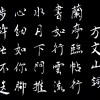 方文山詞
蘭亭臨帖行
書如行雲流
水月下門推
心細如你腳
步碎忙不迭